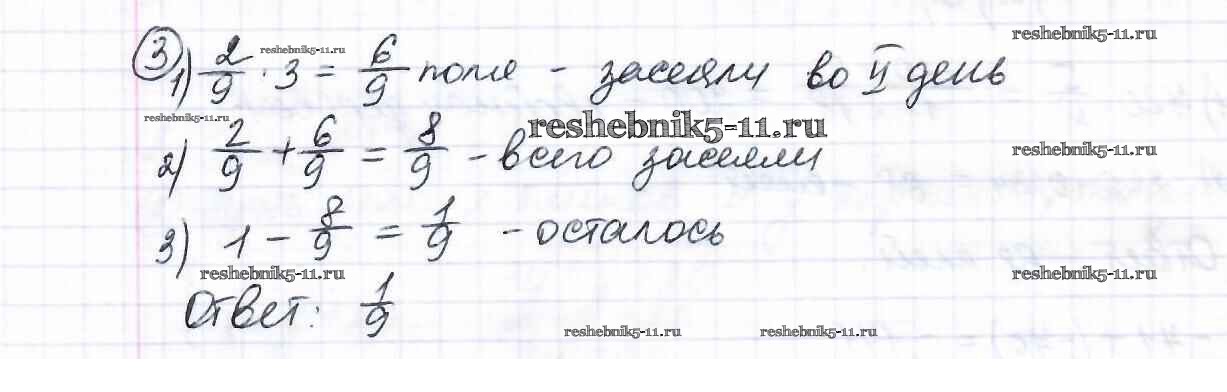 ③ reshebnik5-11.ru
1) 2/9 · 3 = 6/9 поле - засеяли во II день
reshebnik5-11.ru
reshebnik5-11.ru
reshebnik5-11.ru
2) 2/9 + 6/9 = 8/9 - всего засеяли
reshebnik5-11.ru
3) 1 - 8/9 = 1/9 - осталось
reshebnik5-11.ru
reshebnik5-11.ru
Ответ: 1/9
reshebnik5-11.ru
reshebnik5-11.ru
reshebnik5-11.ru